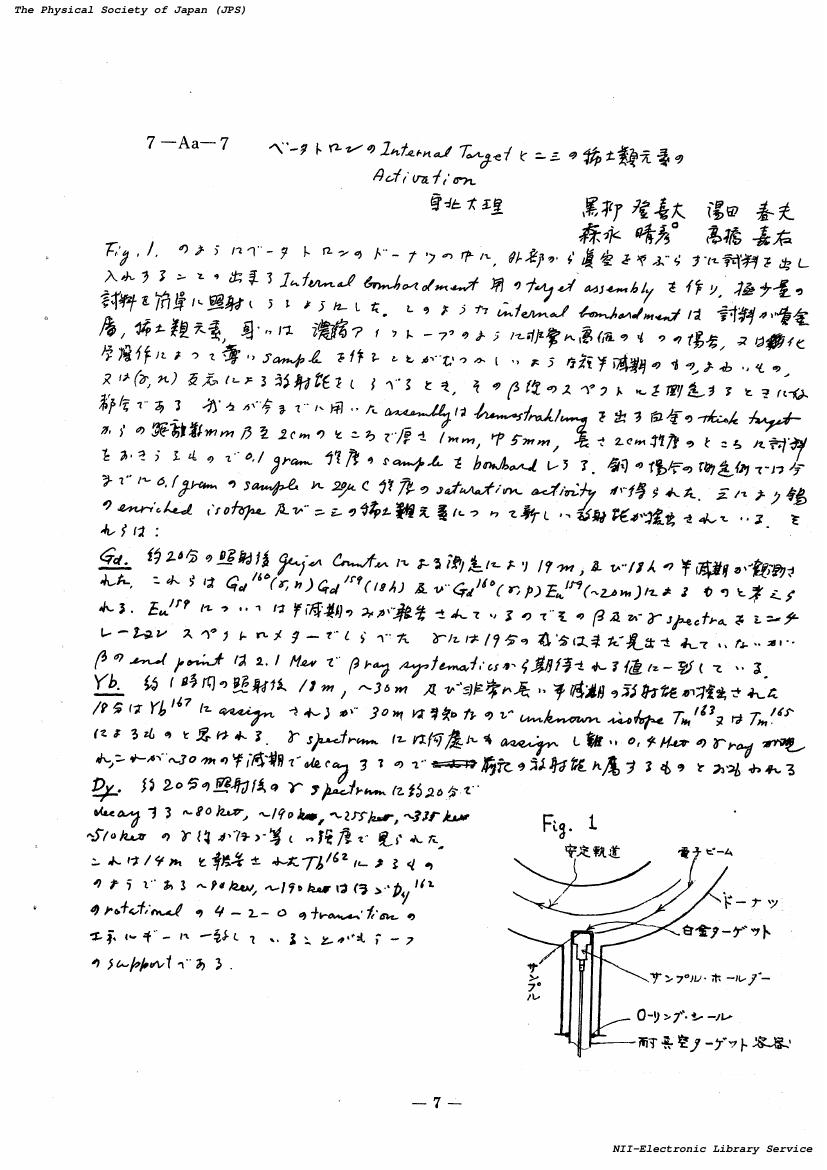 The Physical Society of Japan (JPS)
7-Aa-7 ベータトロンのInternal Targetと二三の稀土類元素の
Activation
東北大理 黒柳登喜大 湯田春夫
森永晴彦° 高橋嘉右
Fig.1. のようにベータトロンのドーナツの中に, 外部から真空をやぶらずに試料を出し
入れすることの出来るInternal bombardment用のtarget assemblyを作り, 極少量の
試料を簡単に照射しうるようにした。このようなinternal bombardmentは試料が貴金
属, 稀土類元素, 或いは濃縮アイソトープのように非常に高価のものの場合, 又は化
学操作によって薄いsampleを作ることがむつかしいような短半減期のもの,
又は(γ,n)反応による放射能をしらべるとき, そのβ線のスペクトルを測定するときに好
都合である 我々が今までに用いたassemblyはbremsstrahlungを出す白金のthick target
からの距離数mm乃至2cmのところで厚さ1mm, 巾5mm, 長さ2cm程度のところに試料
をおきうるもので0.1gram程度のsampleをbombardしうる. 銅の場合の測定例では今
までに0.1gramのsampleに20μC程度のsaturation activityが得られた. 錫
のenriched isotope及び二三の稀土類元素について新しい放射能が検出されている. そ
れらは:
Gd. 約20分の照射後Geiger Counterによる測定により19m, 及び18hの半減期が観測さ
れた. これらはGd¹⁶⁰(γ,n)Gd¹⁵⁹(18h)及びGd¹⁶⁰(γ,p)Eu¹⁵⁹(~20m)によるものと考えら
れる. Eu¹⁵⁹については半減期のみが報告されているのでそのβ及びγ spectraをシンチ
レーションスペクトロメターでしらべた γには19分の成分はまだ見出されていないが
βのend pointは2.1Mevでβ ray systematicsから期待される値に一致している.
Yb. 約1時間の照射後18m, ~30m及び非常に長い半減期の放射能が検出された
18分はYb¹⁶⁷にassignされるが30mは未知なのでunknown isotope Tm¹⁶³又はTm¹⁶⁵
によるものと思はれる. γ spectrumには何處にもassignし難い0.4Mevのγ rayが現
れ,これが~30mの半減期でdecayするので前記の放射能に属するものとおもわれる
Dy. 約20分の照射後のγ spectrumに約20分で
decayする~80kev, ~190kev, ~255kev, ~335kev
~510kevのγ線がほゞ等しい強度で見られた.
これは14mと報告されたTb¹⁶²によるもの
のようである ~80kev, ~190kevはほゞDy¹⁶²
のrotationalの4-2-0のtransitionの
エネルギーに一致していることがも一つ
のsupportである.
Fig. 1
安定軌道
電子ビーム
ドーナツ
白金ターゲット
サンプル
サンプル・ホールダー
O-リング・シール
耐真空ターゲット容器
— 7 —
NII-Electronic Library Service